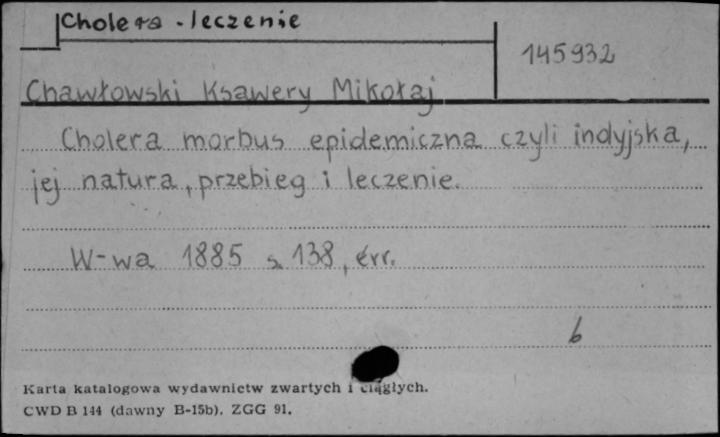 Cholera - leczenie
145932
Chawłowski Ksawery Mikołaj
Cholera morbus epidemiczna czyli indyjska,
jej natura, przebieg i leczenie.
W-wa 1885 s. 138, err.
b
Karta katalogowa wydawnictw zwartych i ciągłych.
CWD B 144 (dawny B-15b). ZGG 91.